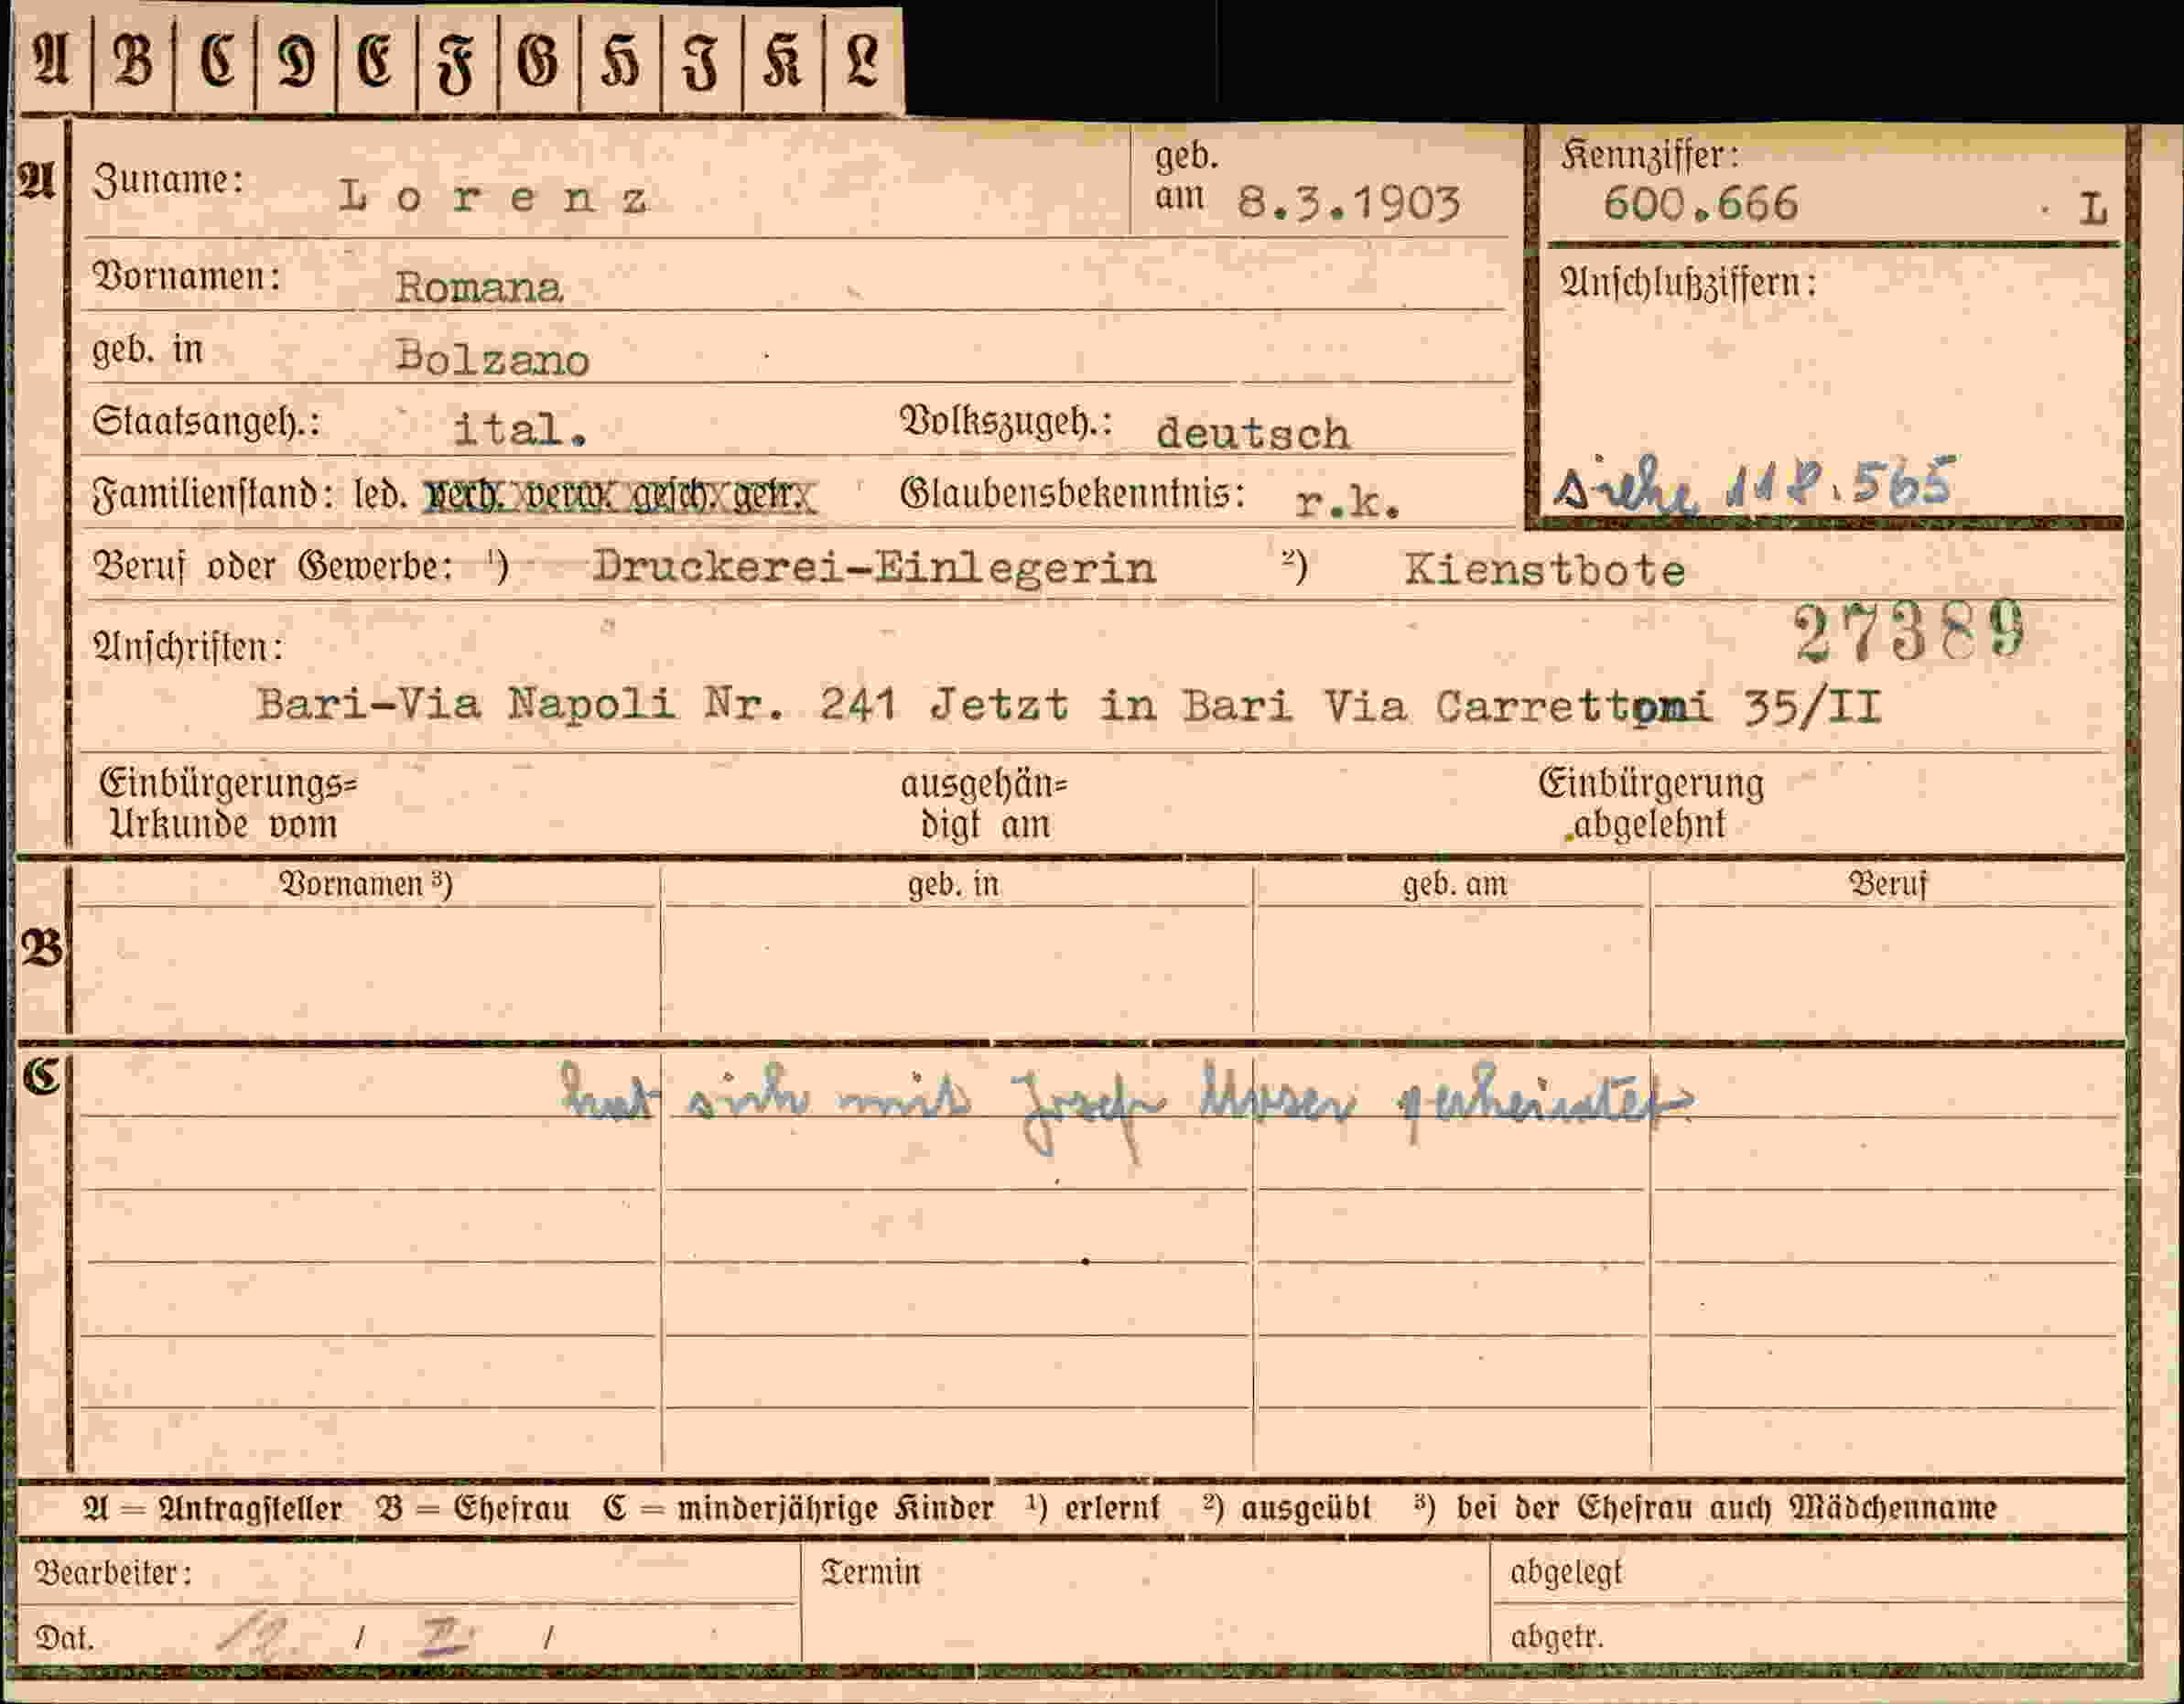 A B C D E F G H I K L
A Zuname: Lorenz geb. am 8.3.1903 Kennziffer: 600.666 L
Vornamen: Romana Anschlußziffern:
geb. in Bolzano
Staatsangeh.: ital. Volkszugeh.: deutsch
Familienstand: led. verh. verw. gesch. getr. Glaubensbekenntnis: r.k. siehe 118.565
Beruf oder Gewerbe: ¹) Druckerei-Einlegerin ²) Kienstbote
27389
Anschriften:
Bari-Via Napoli Nr. 241 Jetzt in Bari Via Carrettoni 35/II
Einbürgerungs= ausgehän= Einbürgerung
Urkunde vom digt am abgelehnt
Vornamen ³) geb. in geb. am Beruf
B
C
hat sich mit Josef Moser verheiratet
A = Antragsteller B = Ehefrau C = minderjährige Kinder ¹) erlernt ²) ausgeübt ³) bei der Ehefrau auch Mädchenname
Bearbeiter: Termin abgelegt
Dat. 12. / I / abgetr.